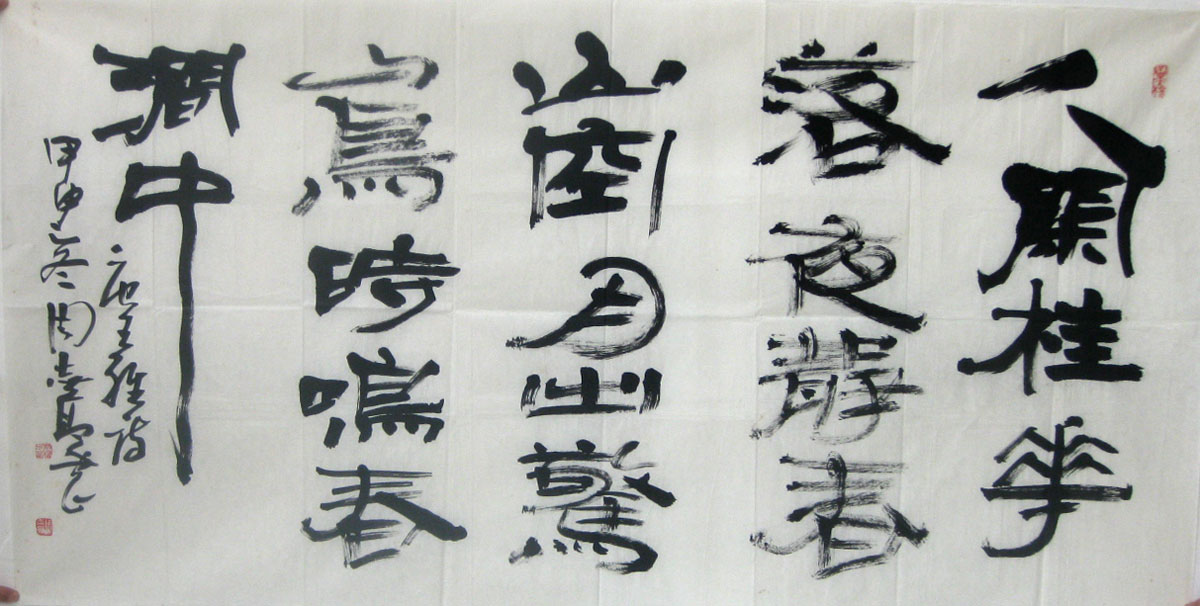 人閑桂華
落夜靜春
山空月出驚
山鳥時鳴春
澗中
唐王維詩
甲申冬周